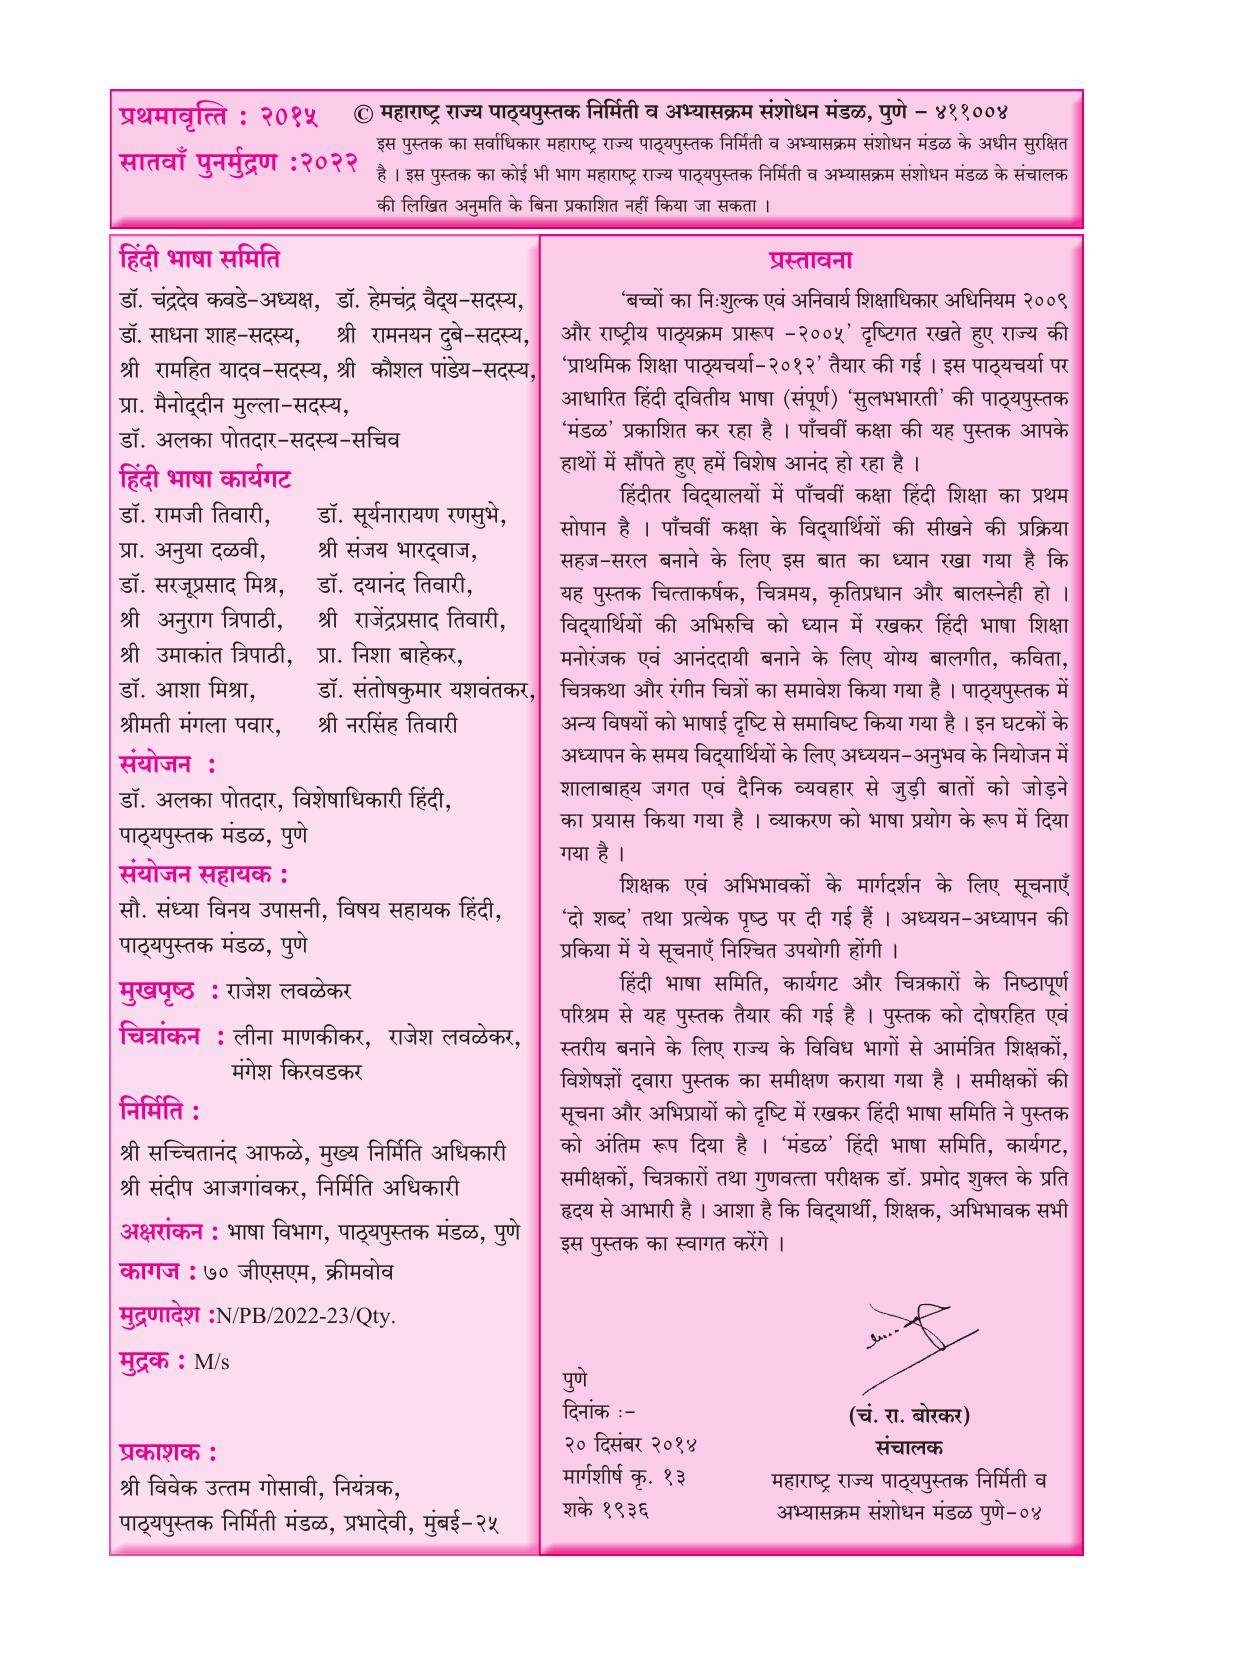 प्रथमावृत्ति : २०१५
सातवाँ पुनर्मुद्रण :२०२२
© महाराष्ट्र राज्य पाठ्यपुस्तक निर्मिती व अभ्यासक्रम संशोधन मंडळ, पुणे – ४११००४
इस पुस्तक का सर्वाधिकार महाराष्ट्र राज्य पाठ्यपुस्तक निर्मिती व अभ्यासक्रम संशोधन मंडळ के अधीन सुरक्षित
है । इस पुस्तक का कोई भी भाग महाराष्ट्र राज्य पाठ्यपुस्तक निर्मिती व अभ्यासक्रम संशोधन मंडळ के संचालक
की लिखित अनुमति के बिना प्रकाशित नहीं किया जा सकता ।
हिंदी भाषा समिति
डॉ. चंद्रदेव कवडे-अध्यक्ष, डॉ. हेमचंद्र वैद्य-सदस्य,
डॉ. साधना शाह-सदस्य, श्री रामनयन दुबे-सदस्य,
श्री रामहित यादव-सदस्य, श्री कौशल पांडेय-सदस्य,
प्रा. मैनोद्दीन मुल्ला-सदस्य,
डॉ. अलका पोतदार-सदस्य-सचिव
हिंदी भाषा कार्यगट
डॉ. रामजी तिवारी, डॉ. सूर्यनारायण रणसुभे,
प्रा. अनुया दळवी, श्री संजय भारद्वाज,
डॉ. सरजूप्रसाद मिश्र, डॉ. दयानंद तिवारी,
श्री अनुराग त्रिपाठी, श्री राजेंद्रप्रसाद तिवारी,
श्री उमाकांत त्रिपाठी, प्रा. निशा बाहेकर,
डॉ. आशा मिश्रा, डॉ. संतोषकुमार यशवंतकर,
श्रीमती मंगला पवार, श्री नरसिंह तिवारी
संयोजन :
डॉ. अलका पोतदार, विशेषाधिकारी हिंदी,
पाठ्यपुस्तक मंडळ, पुणे
संयोजन सहायक :
सौ. संध्या विनय उपासनी, विषय सहायक हिंदी,
पाठ्यपुस्तक मंडळ, पुणे
मुखपृष्ठ : राजेश लवळेकर
चित्रांकन : लीना माणकीकर, राजेश लवळेकर,
मंगेश किरवडकर
निर्मिति :
श्री सच्चितानंद आफळे, मुख्य निर्मिति अधिकारी
श्री संदीप आजगांवकर, निर्मिति अधिकारी
अक्षरांकन : भाषा विभाग, पाठ्यपुस्तक मंडळ, पुणे
कागज : ७० जीएसएम, क्रीमवोव
मुद्रणादेश :N/PB/2022-23/Qty.
मुद्रक : M/s
प्रकाशक :
श्री विवेक उत्तम गोसावी, नियंत्रक,
पाठ्यपुस्तक निर्मिती मंडळ, प्रभादेवी, मुंबई-२५
प्रस्तावना
‘बच्चों का निःशुल्क एवं अनिवार्य शिक्षाधिकार अधिनियम २००९
और राष्ट्रीय पाठ्यक्रम प्रारूप -२००५’ दृष्टिगत रखते हुए राज्य की
‘प्राथमिक शिक्षा पाठ्यचर्या-२०१२’ तैयार की गई । इस पाठ्यचर्या पर
आधारित हिंदी द्वितीय भाषा (संपूर्ण) ‘सुलभभारती’ की पाठ्यपुस्तक
‘मंडळ’ प्रकाशित कर रहा है । पाँचवीं कक्षा की यह पुस्तक आपके
हाथों में सौंपते हुए हमें विशेष आनंद हो रहा है ।
हिंदीतर विद्यालयों में पाँचवीं कक्षा हिंदी शिक्षा का प्रथम
सोपान है । पाँचवीं कक्षा के विद्यार्थियों की सीखने की प्रक्रिया
सहज-सरल बनाने के लिए इस बात का ध्यान रखा गया है कि
यह पुस्तक चित्ताकर्षक, चित्रमय, कृतिप्रधान और बालस्नेही हो ।
विद्यार्थियों की अभिरुचि को ध्यान में रखकर हिंदी भाषा शिक्षा
मनोरंजक एवं आनंददायी बनाने के लिए योग्य बालगीत, कविता,
चित्रकथा और रंगीन चित्रों का समावेश किया गया है । पाठ्यपुस्तक में
अन्य विषयों को भाषाई दृष्टि से समाविष्ट किया गया है । इन घटकों के
अध्यापन के समय विद्यार्थियों के लिए अध्ययन-अनुभव के नियोजन में
शालाबाह्य जगत एवं दैनिक व्यवहार से जुड़ी बातों को जोड़ने
का प्रयास किया गया है । व्याकरण को भाषा प्रयोग के रूप में दिया
गया है ।
शिक्षक एवं अभिभावकों के मार्गदर्शन के लिए सूचनाएँ
‘दो शब्द’ तथा प्रत्येक पृष्ठ पर दी गई हैं । अध्ययन-अध्यापन की
प्रकिया में ये सूचनाएँ निश्चित उपयोगी होंगी ।
हिंदी भाषा समिति, कार्यगट और चित्रकारों के निष्ठापूर्ण
परिश्रम से यह पुस्तक तैयार की गई है । पुस्तक को दोषरहित एवं
स्तरीय बनाने के लिए राज्य के विविध भागों से आमंत्रित शिक्षकों,
विशेषज्ञों द्वारा पुस्तक का समीक्षण कराया गया है । समीक्षकों की
सूचना और अभिप्रायों को दृष्टि में रखकर हिंदी भाषा समिति ने पुस्तक
को अंतिम रूप दिया है । ‘मंडळ’ हिंदी भाषा समिति, कार्यगट,
समीक्षकों, चित्रकारों तथा गुणवत्ता परीक्षक डॉ. प्रमोद शुक्ल के प्रति
हृदय से आभारी है । आशा है कि विद्यार्थी, शिक्षक, अभिभावक सभी
इस पुस्तक का स्वागत करेंगे ।
पुणे
दिनांक :-
२० दिसंबर २०१४
मार्गशीर्ष कृ. १३
शके १९३६
(चं. रा. बोरकर)
संचालक
महाराष्ट्र राज्य पाठ्यपुस्तक निर्मिती व
अभ्यासक्रम संशोधन मंडळ पुणे-०४